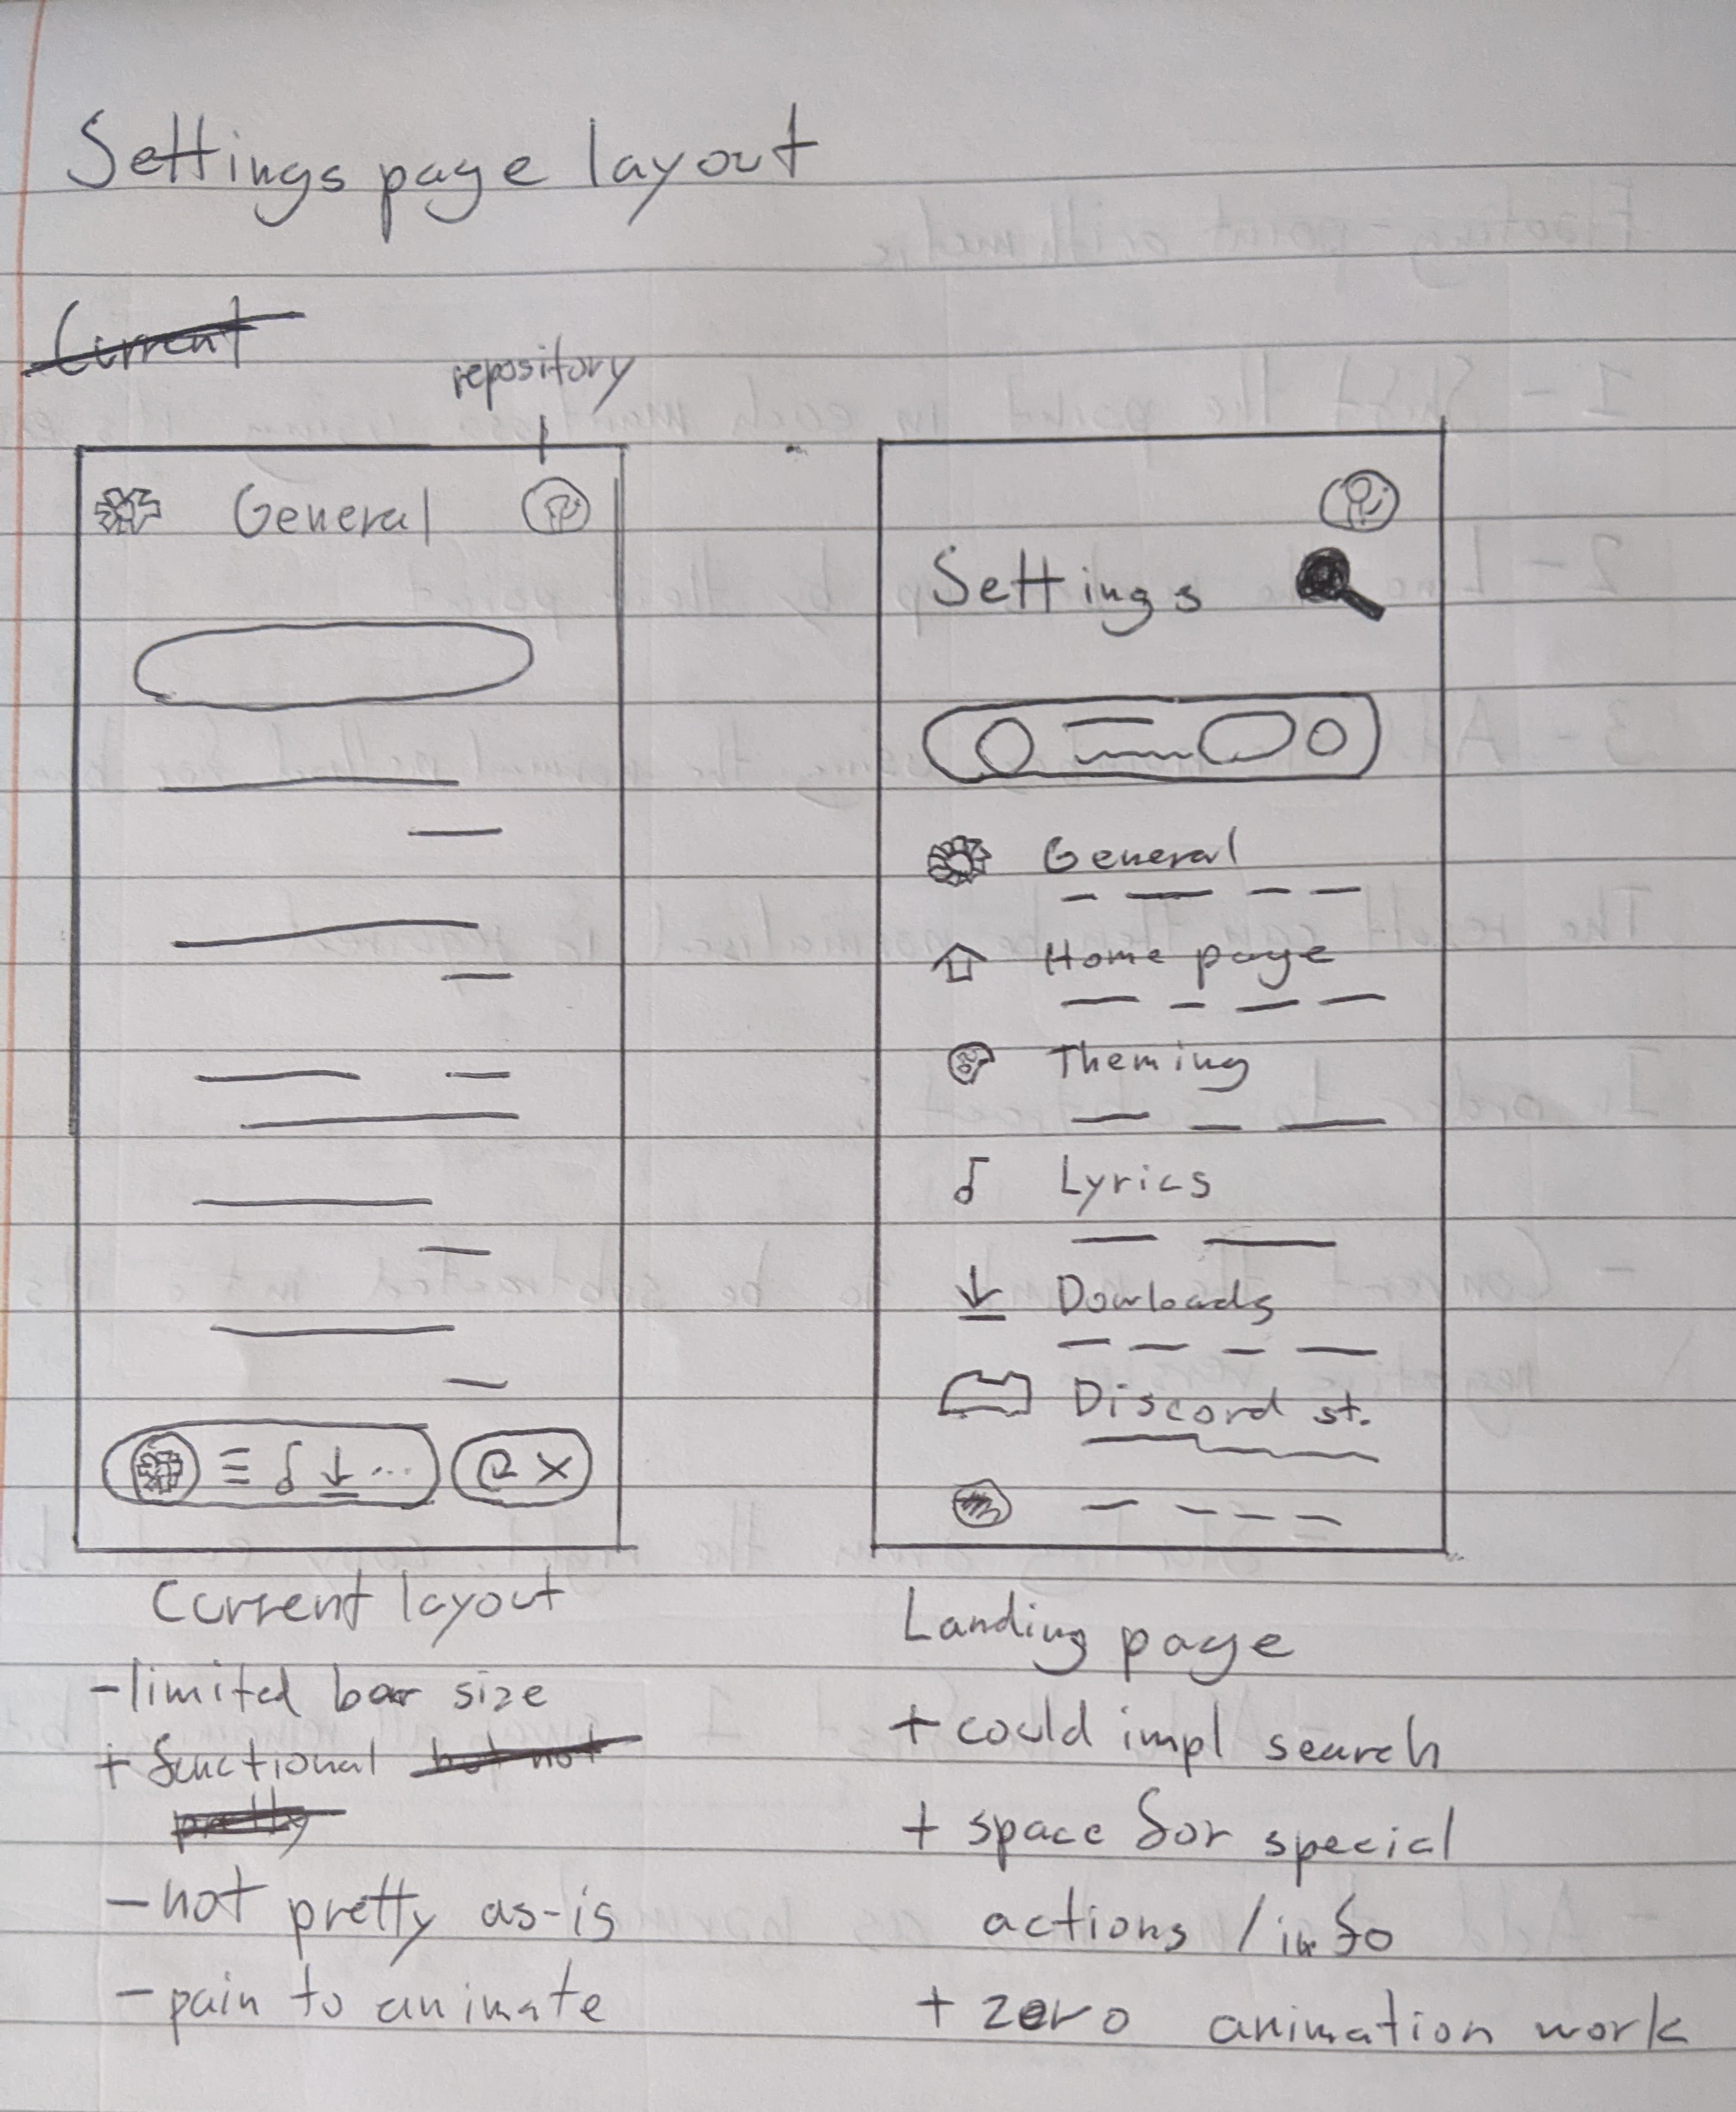 Settings page layout
Current
repository
General
Current layout
-limited bar size
+ functional but not
pretty
-not pretty as-is
-pain to animate
Settings
General
Home page
Theming
Lyrics
Dowloads
Discord st.
Landing page
+ could impl search
+ space for special
actions / info
+ zero animation work